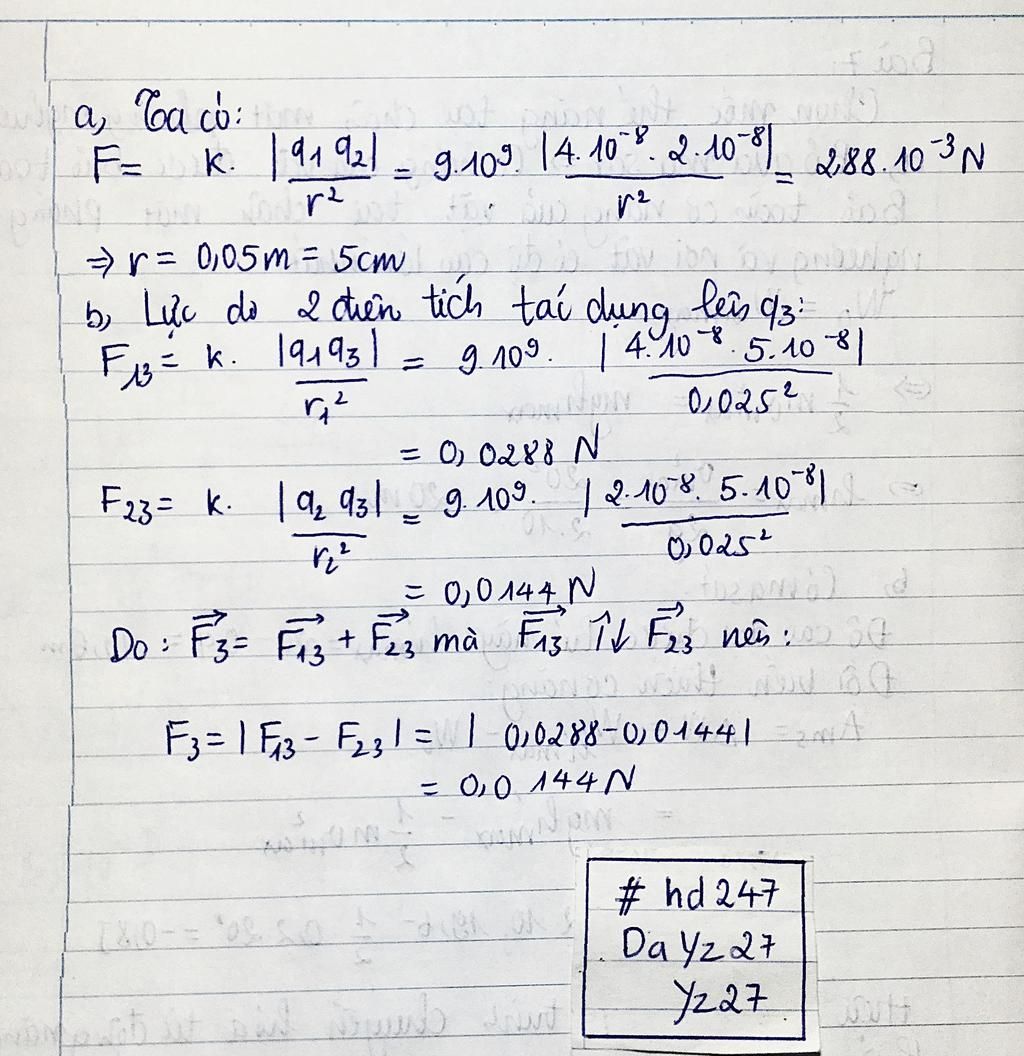 a, Ta có:
F = k. |q1 q2| / r² = 9.10⁹. |4.10⁻⁸. 2.10⁻⁸| / r² = 2,88.10⁻³ N
⇒ r = 0,05m = 5cm
b, Lực do 2 điện tích tác dụng lên q3:
F13 = k. |q1q3| / r1² = 9.10⁹. |4.10⁻⁸.5.10⁻⁸| / 0,025²
= 0,0288 N
F23 = k. |q2 q3| / r2² = 9.10⁹. |2.10⁻⁸. 5.10⁻⁸| / 0,025²
= 0,0144 N
Do: F⃗3 = F⃗13 + F⃗23 mà F⃗13 ↑↓ F⃗23 nên:
F3 = |F13 - F23| = | 0,0288-0,0144|
= 0,0144 N
# hd247
Da Yz27
Yz27